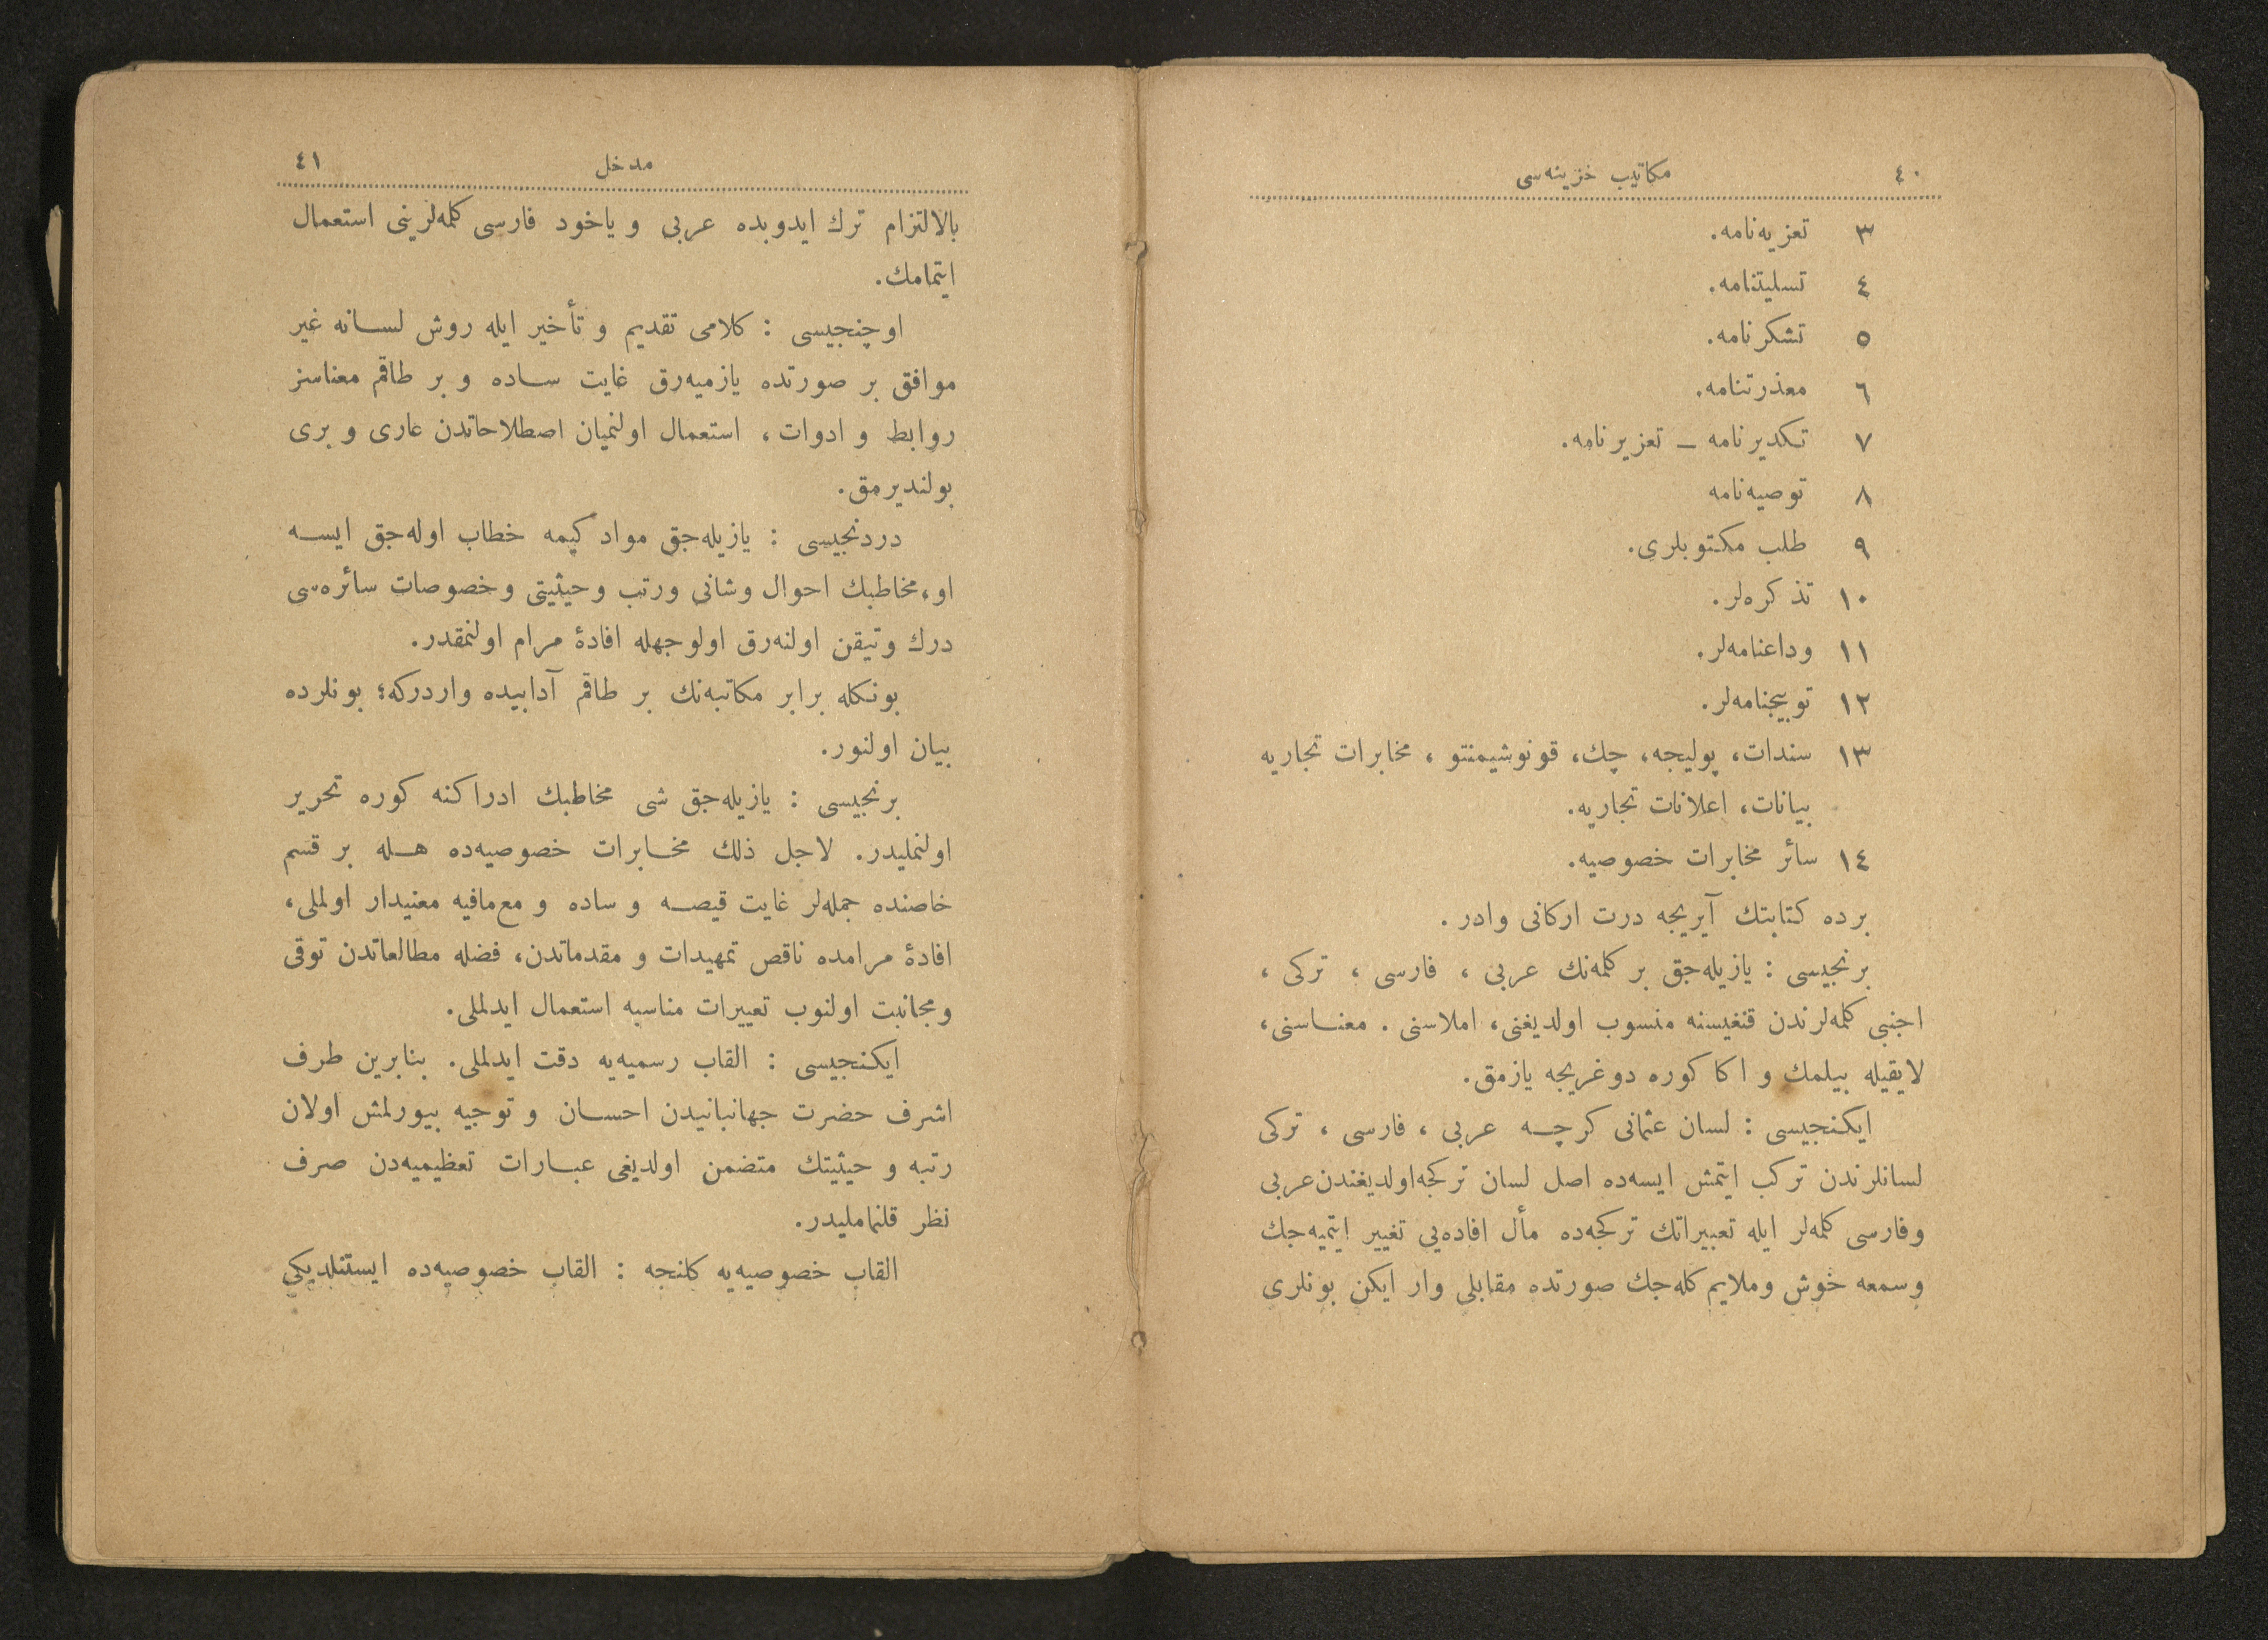 ٤٠
مكاتيب خزينه‌سی
٣ تعزيه‌نامه.
٤ تسليتنامه.
٥ تشكرنامه.
٦ معذرتنامه.
٧ تكديرنامه ــ تعزيرنامه.
٨ توصيه‌نامه
٩ طلب مكتوبلری.
١٠ تذكره‌لر.
١١ وداعنامه‌لر.
١٢ توبيخنامه‌لر.
١٣ سندات، پوليجه، چك، قونوشيمنتو ، مخابرات تجاريه
بيانات، اعلانات تجاريه.
١٤ سائر مخابرات خصوصيه.
برده كتابتك آيريجه درت اركانی وادر .
برنجيسی : يازيله‌جق بر كلمه‌نك عربی ، فارسی ، تركی ،
اجنبی كلمه‌لرندن قنغيسنه منسوب اولديغنی، املاسنی . معناسنی،
لايقيله بيلمك و اكا كوره دوغريجه يازمق.
ايكنجيسی : لسان عثمانی كرچه عربی ، فارسی ، تركی
لسانلرندن تركب ايتمش ايسه‌ده اصل لسان تركجه‌اولديغندن‌عربی
وفارسی كلمه‌لر ايله تعبيراتك تركجه‌ده مأل افاده‌يی تغيير ايتميه‌جك
وسمعه خوش وملايم كله‌جك صورتده مقابلی وار ايكن بونلری
مدخل
٤١
بالالتزام ترك ايدوبده عربی و ياخود فارسی كلمه‌لرينی استعمال
ايتمامك.
اوچنجيسی : كلامی تقديم و تأخير ايله روش لسانه غير
موافق بر صورتده يازميه‌رق غايت ساده و بر طاقم معناسز
روابط و ادوات ، استعمال اولنميان اصطلاحاتدن عاری و بری
بولنديرمق.
دردنجيسی : يازيله‌جق مواد كيمه خطاب اوله‌جق ايسه
او، مخاطبك احوال وشانی ورتب وحيثيتی وخصوصات سائره‌سی
درك وتيقن اولنه‌رق اولوجهله افادهٔ مرام اولنمقدر.
بونكله برابر مكاتبه‌نك بر طاقم آدابيده واردركه؛ بونلرده
بيان اولنور.
برنجيسی : يازيله‌جق شی مخاطبك ادراكنه كوره تحرير
اولنمليدر. لاجل ذلك مخابرات خصوصيه‌ده هله بر قسم
خاصنده جمله‌لر غايت قيصه و ساده و مع‌مافيه معنيدار اولملی،
افادهٔ مرامده ناقص تمهيدات و مقدماتدن، فضله مطالعاتدن توقی
ومجانبت اولنوب تعبيرات مناسبه استعمال ايدلملی.
ايكنجيسی : القاب رسميه‌يه دقت ايدلملی. بنابرين طرف
اشرف حضرت جهانبانيدن احسان و توجيه بيورلمش اولان
رتبه و حيثيتك متضمن اولديغی عبارات تعظيميه‌دن صرف
نظر قلنمامليدر.
القاب خصوصيه‌يه كلنجه : القاب خصوصيه‌ده ايستنلديكی